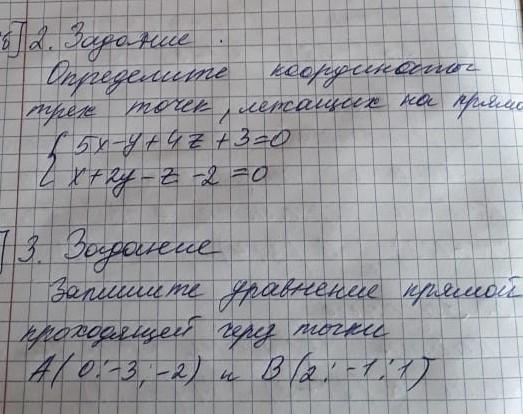 б] 2. Задание.
Определите координаты
трех точек, лежащих на прямо
{ 5x-y+4z+3=0
x+2y-z-2=0
] 3. Задание
Запишите уравнение прямой
проходящей через точки
A(0; -3; -2) и B(2; -1; 1)